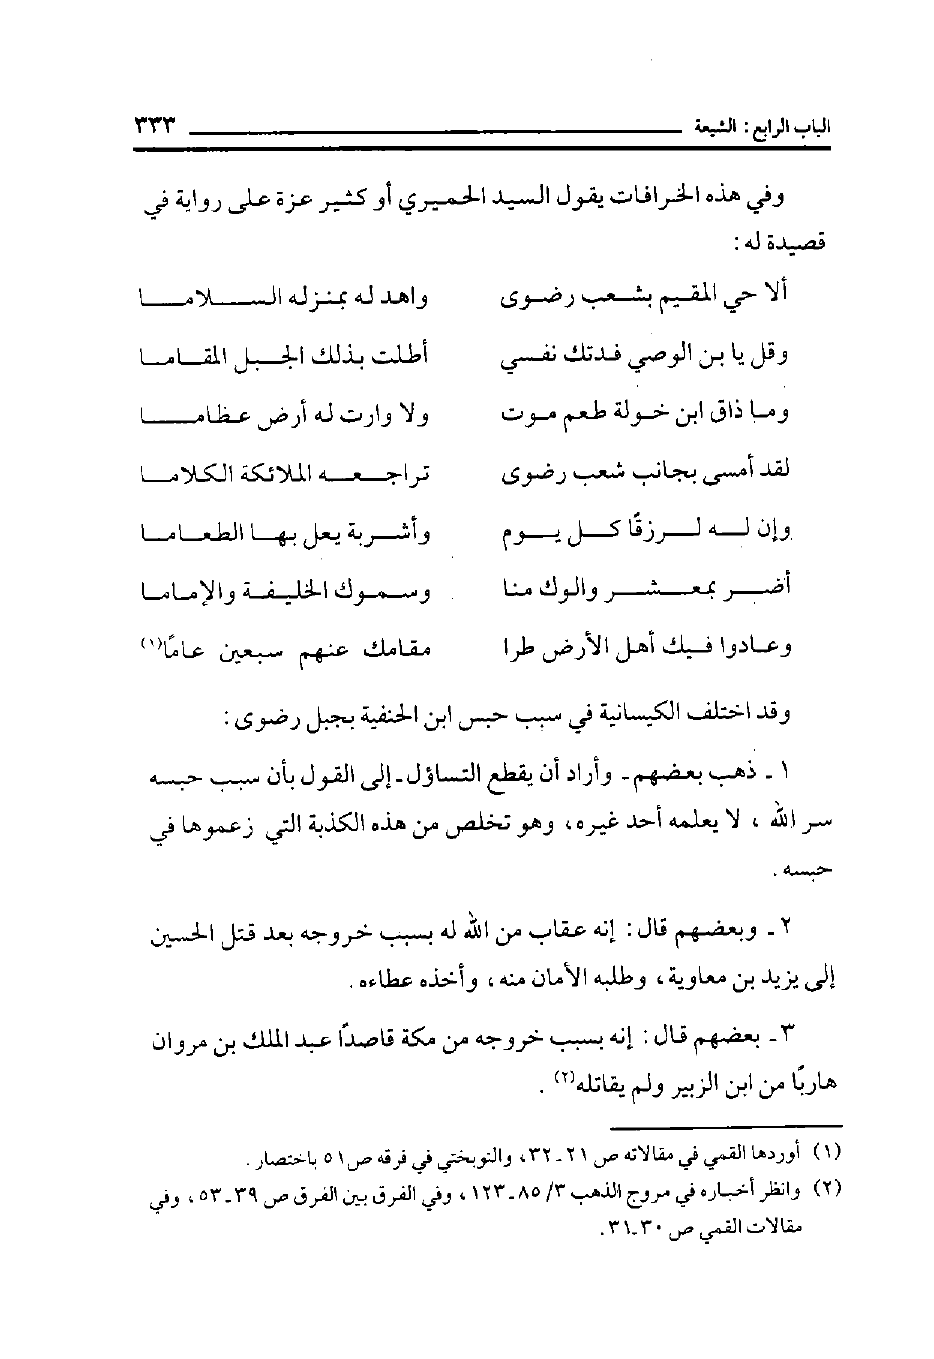 الباب الرابع : الشيعة ٣٣٣
وفي هذه الخرافات يقول السيد الحميري أو كثير عزة على رواية في
قصيدة له :
ألا حي المقيم بشعب رضوى واهد له بمنزله السلاما
وقل يا بن الوصي فدتك نفسي أطلت بذلك الجبل المقاما
وما ذاق ابن خولة طعم موت ولا وارت له أرض عظاما
لقد أمسى بجانب شعب رضوى تراجعه الملائكة الكلاما
وإن له لرزقًا كل يوم وأشربة يعل بها الطعاما
أضر بمعشر والوك منا وسموك الخليفة والإماما
وعادوا فيك أهل الأرض طرا مقامك عنهم سبعين عامًا(١)
وقد اختلف الكيسانية في سبب حبس ابن الحنفية بجبل رضوى :
١ - ذهب بعضهم - وأراد أن يقطع التساؤل - إلى القول بأن سبب حبسه
سر الله ، لا يعلمه أحد غيره، وهو تخلص من هذه الكذبة التي زعموها في
حبسه .
٢ - وبعضهم قال : إنه عقاب من الله له بسبب خروجه بعد قتل الحسين
إلى يزيد بن معاوية ، وطلبه الأمان منه ، وأخذه عطاءه .
٣ - بعضهم قال : إنه بسبب خروجه من مكة قاصدًا عبد الملك بن مروان
هاربًا من ابن الزبير ولم يقاتله(٢) .
(١) أوردها القمي في مقالاته ص ٢١-٣٢، والنوبختي في فرقه ص٥١ باختصار .
(٢) وانظر أخباره في مروج الذهب ٣/ ٨٥-١٢٣ ، وفي الفرق بين الفرق ص ٣٩-٥٣ ، وفي
مقالات القمي ص ٣٠-٣١.